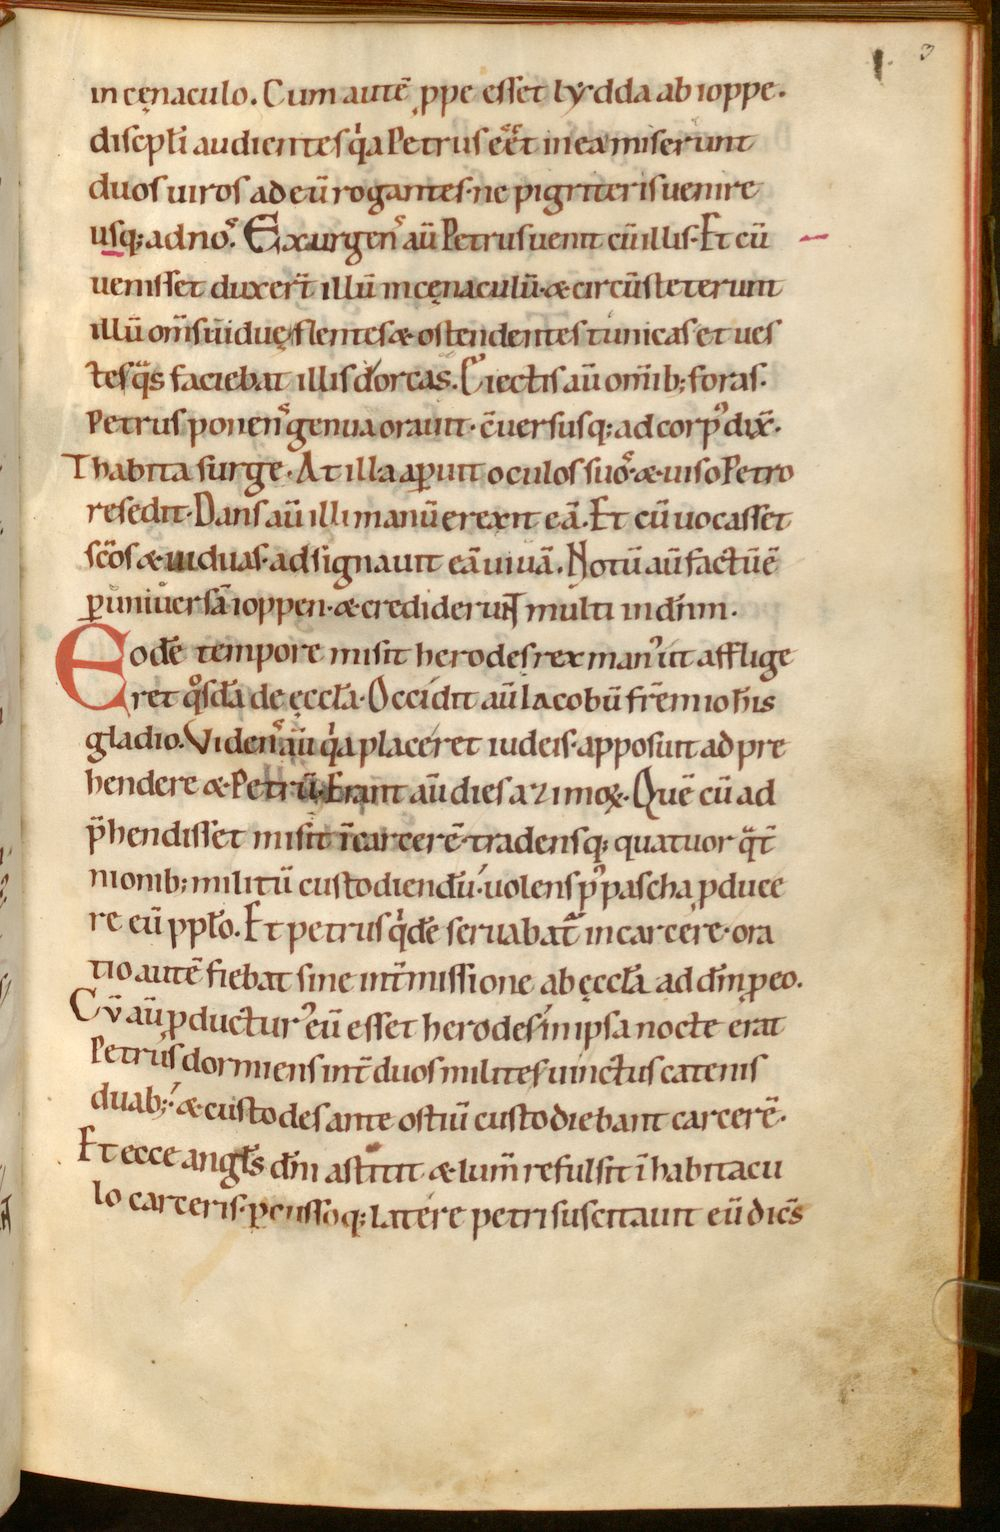 3
in cęnaculo. Cum autē ꝓpe esset lydda ab ioppe.
discipłi audientes qͥa Petrus eēt in ea miserunt
duos uiros ad eū rogantes· ne pigriteris uenire
usq; ad noˢ. Exurgenˢ aū Petrus uenit cū illis· Et cū
uenisset duxer̄t illū in cęnaculū· & circūsteterunt
illū om̄s uiduę flentes & ostendentes tunicas et ues
tes q̄s faciebat illis dorcas. Eiectis aū omib; foras·
Petrus ponenˢ genua orauit· c̄uersusq; ad corpꝰ dix̄·
Thabita surge· At illa aꝑuit oculos suoˢ· & uiso Petro
resedit· Dans aū illi manū erexit eā. Et cū uocasset
sc̄os & uiduas· adsignauit eā uiuā. Notū aū factū ē
ꝑ uniuersā ioppen· & crediderunt multi in dn̄m.
Eodē tempore misit herodes rex manꝰ ut afflige
ret qͦsdā de ęccła· Occidit aū Iacobū fr̄em iohis
gladio. Videnˢ aū qͥa placeret iudeis· apposuit ad pre
hendere & Petrū· Erant aū dies azimoꝝ· Quē cū ad
p̄hendisset misit ī carcerē· tradensq; quatuor q̄t̄
nionib; militū custodiendū· uolens pꝰ pascha ꝓduce
re eū ppło. Et petrus qͥdē seruabat᷑ in carcere· ora
tio autē fiebat sine int̄missione ab ęccła ad dm̄ ꝑ eo.
Cū aū ꝓducturꝰ eū esset herodes in ipsa nocte erat
Petrus dormiens int̄ duos milites uinctus catenis
duab;· & custodes ante ostiū custodiebant carcerē·
Et ecce angłs dn̄i astitit & lum̄ refulsit ī habitacu
lo carceris· ꝑcussoq; latere petri suscitauit eū dicēs